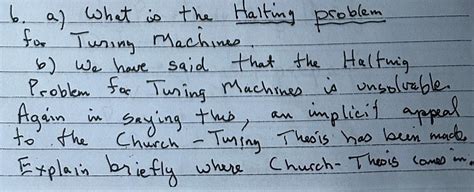 6. a) What is the Halting problem
for Turing Machines.
b) We have said that the Halting
Problem for Turing Machines is unsolvable.
Again in saying this, an implicit appeal
to the Church - Turing Thesis has been made.
Explain briefly where Church-Thesis comes in.